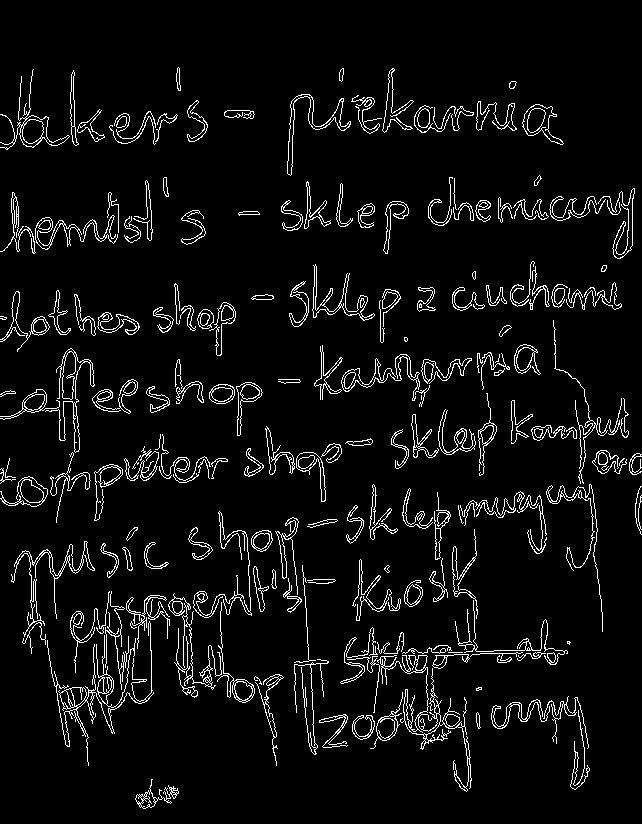 baker's - piekarnia
chemist's - sklep chemiczny
clothes shop - sklep z ciuchami
coffeeshop - kawiarnia
computer shop - sklep komput
oro
music shop - sklep muzyczny
newsagent's - kiosk
sklep z
pet shop zoologiczny